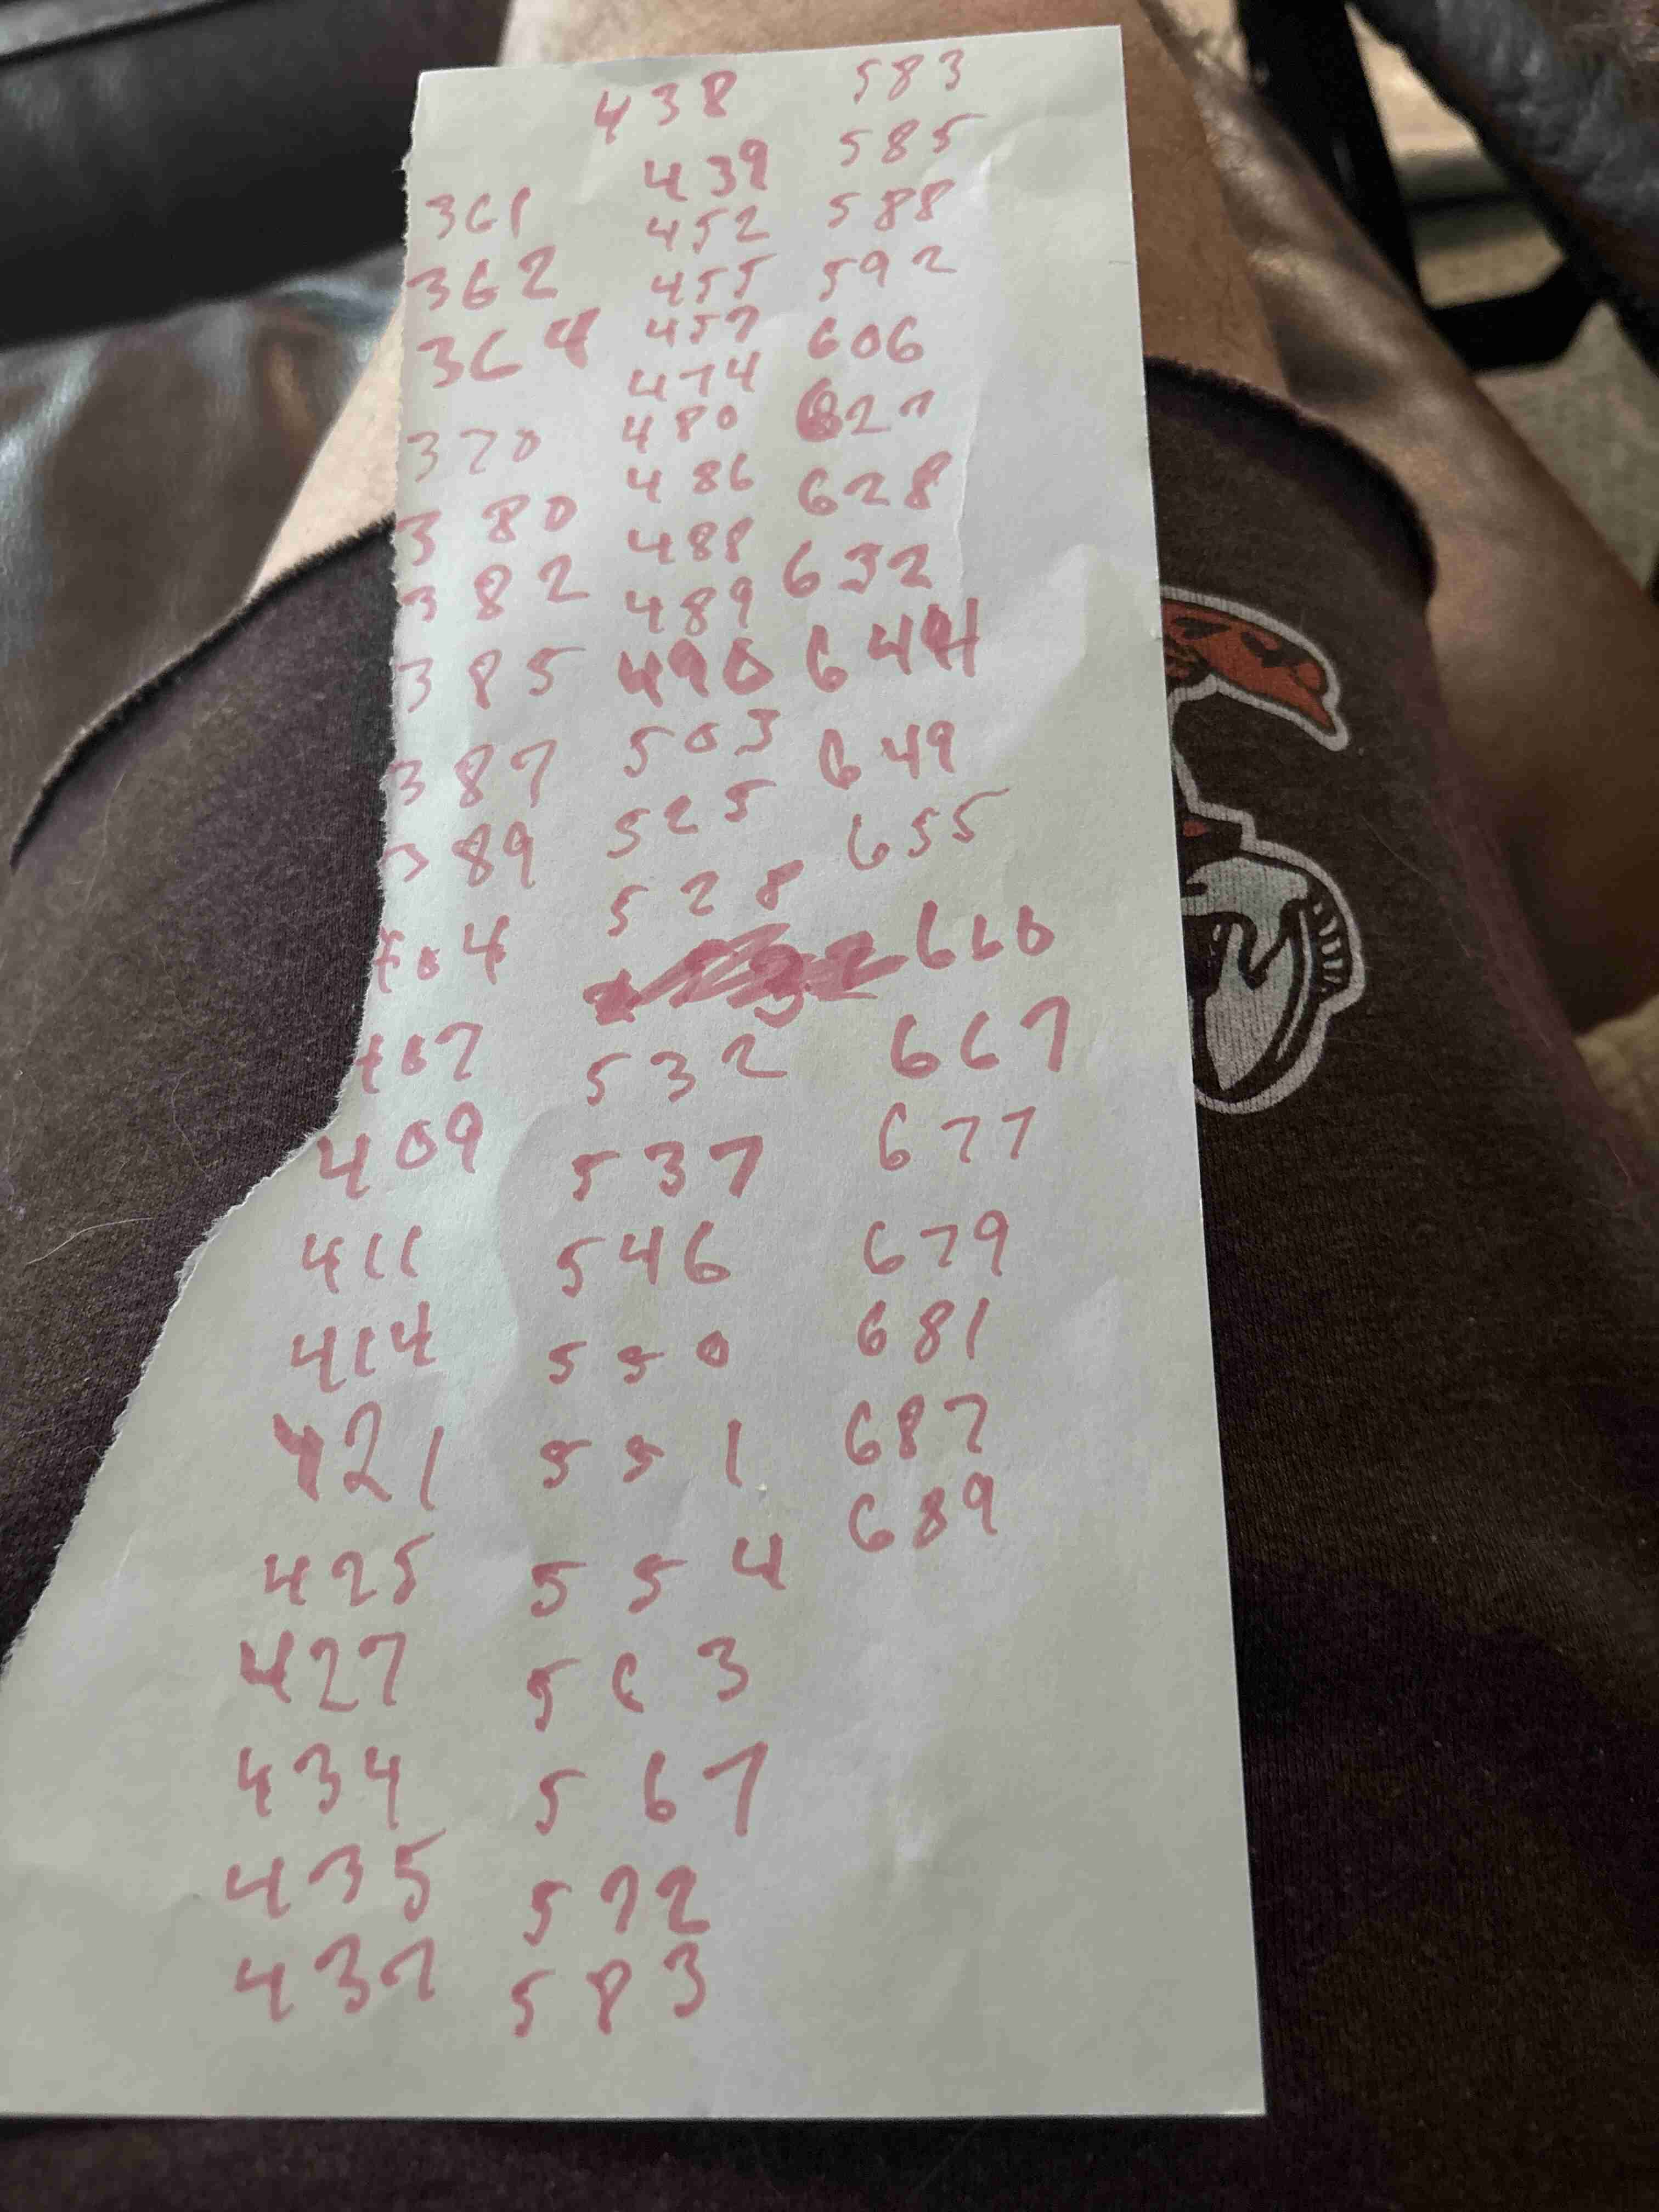 361
362
364
370
380
382
385
387
389
404
407
409
411
414
421
425
427
434
435
437
438
439
452
455
457
474
480
486
488
489
490
503
525
528
532
537
546
550
551
554
563
567
572
583
583
585
588
592
606
627
628
632
644
649
655
660
667
677
679
681
687
689